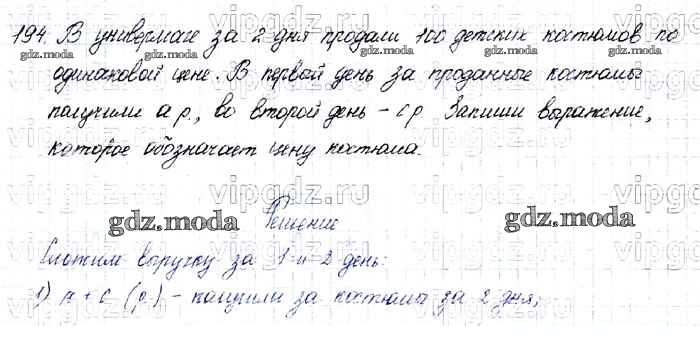 194. В универмаге за 2 дня продали 100 детских костюмов по
одинаковой цене. В первый день за проданные костюмы
получили a р., во второй день – c р. Запиши выражение,
которое обозначает цену костюма.
gdz.moda
Решение
gdz.moda
Сложим выручку за 1 и 2 день:
1) a + c (р.) – получили за костюмы за 2 дня;